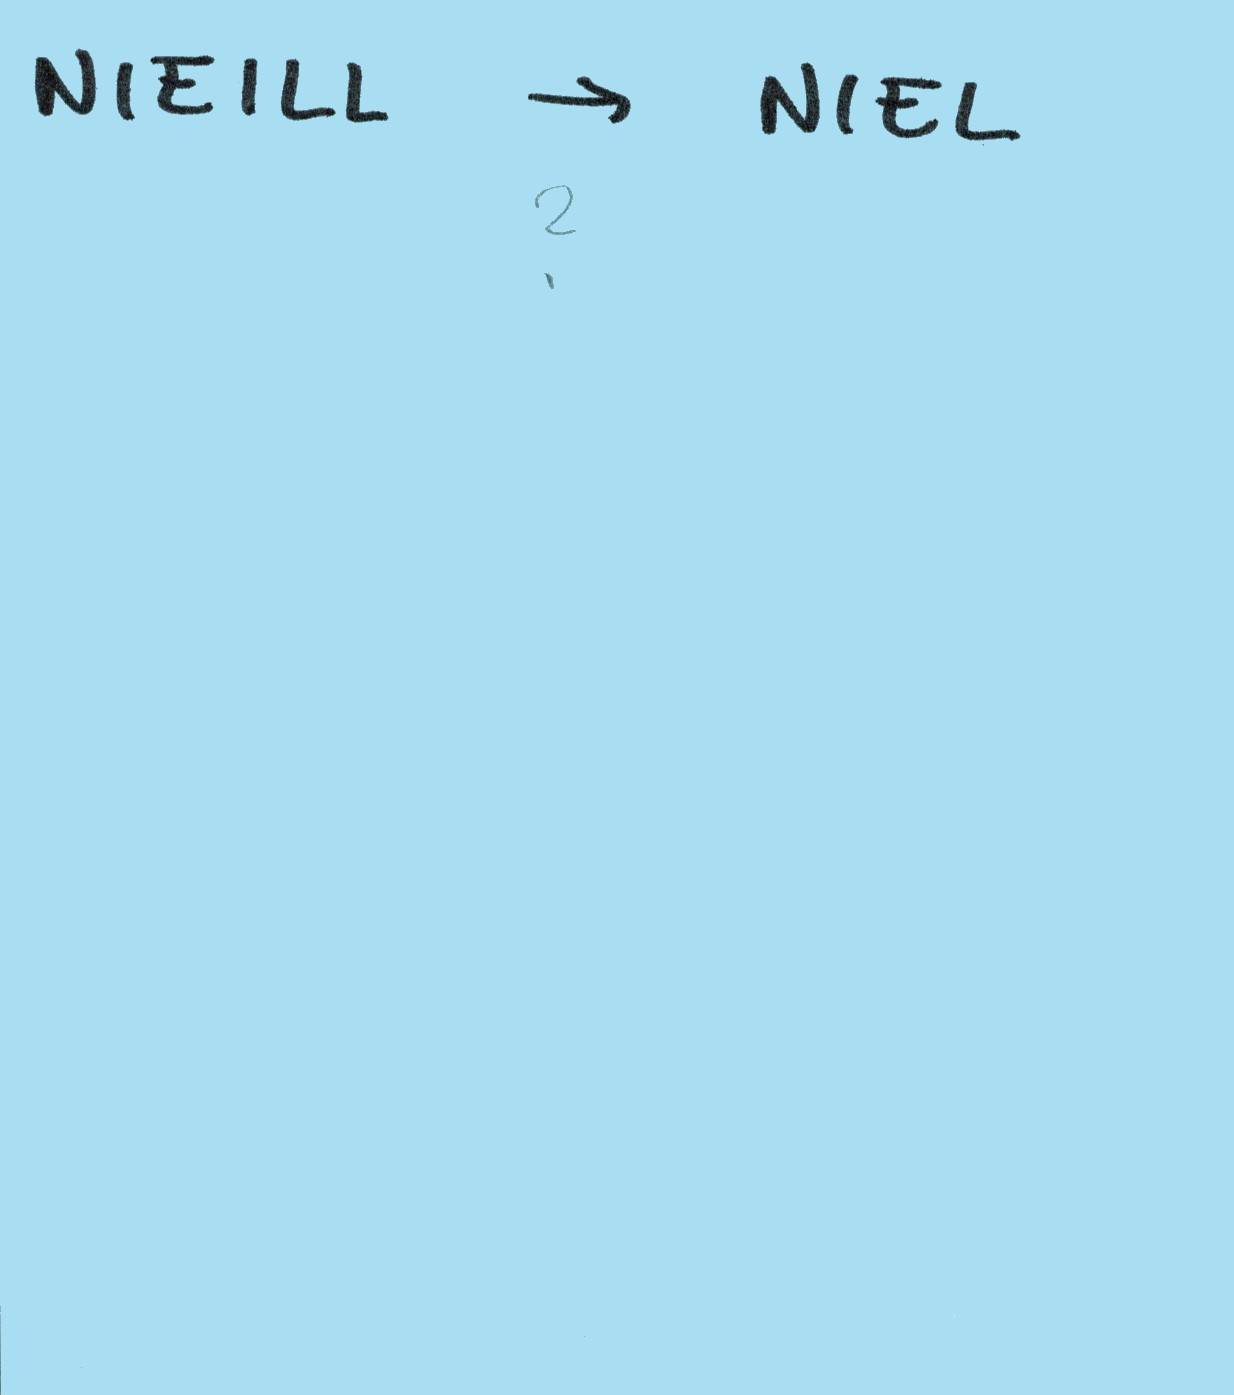 NIEILL → NIEL
?